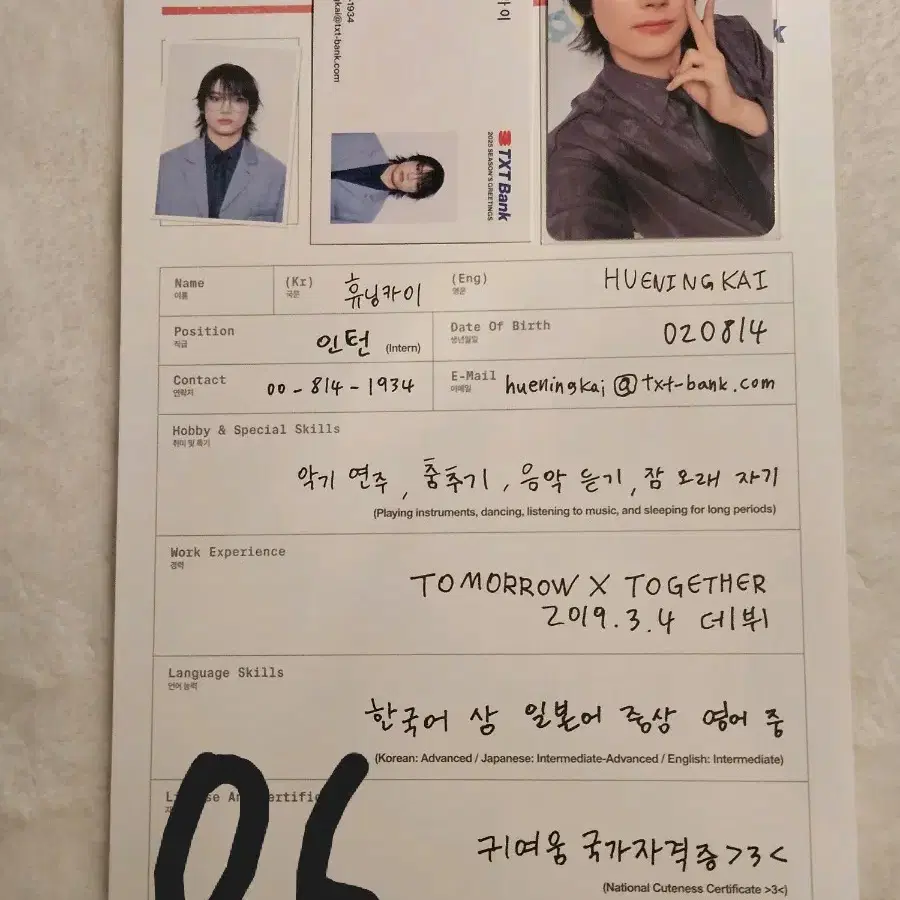 카이
-1934
gkai@txt-bank.com
TXT Bank
2025 SEASON'S GREETINGS
Name
이름
(Kr)
국문
휴닝카이
(Eng)
영문
HUENINGKAI
Position
직급
인턴 (Intern)
Date Of Birth
생년월일
020814
Contact
연락처
00-814-1934
E-Mail
이메일
hueningkai@txt-bank.com
Hobby & Special Skills
취미 및 특기
악기 연주, 춤추기, 음악 듣기, 잠 오래 자기
(Playing instruments, dancing, listening to music, and sleeping for long periods)
Work Experience
경력
TOMORROW X TOGETHER
2019.3.4 데뷔
Language Skills
언어 능력
한국어 상 일본어 중상 영어 중
(Korean: Advanced / Japanese: Intermediate-Advanced / English: Intermediate)
귀여움 국가자격증>3<
(National Cuteness Certificate >3<)